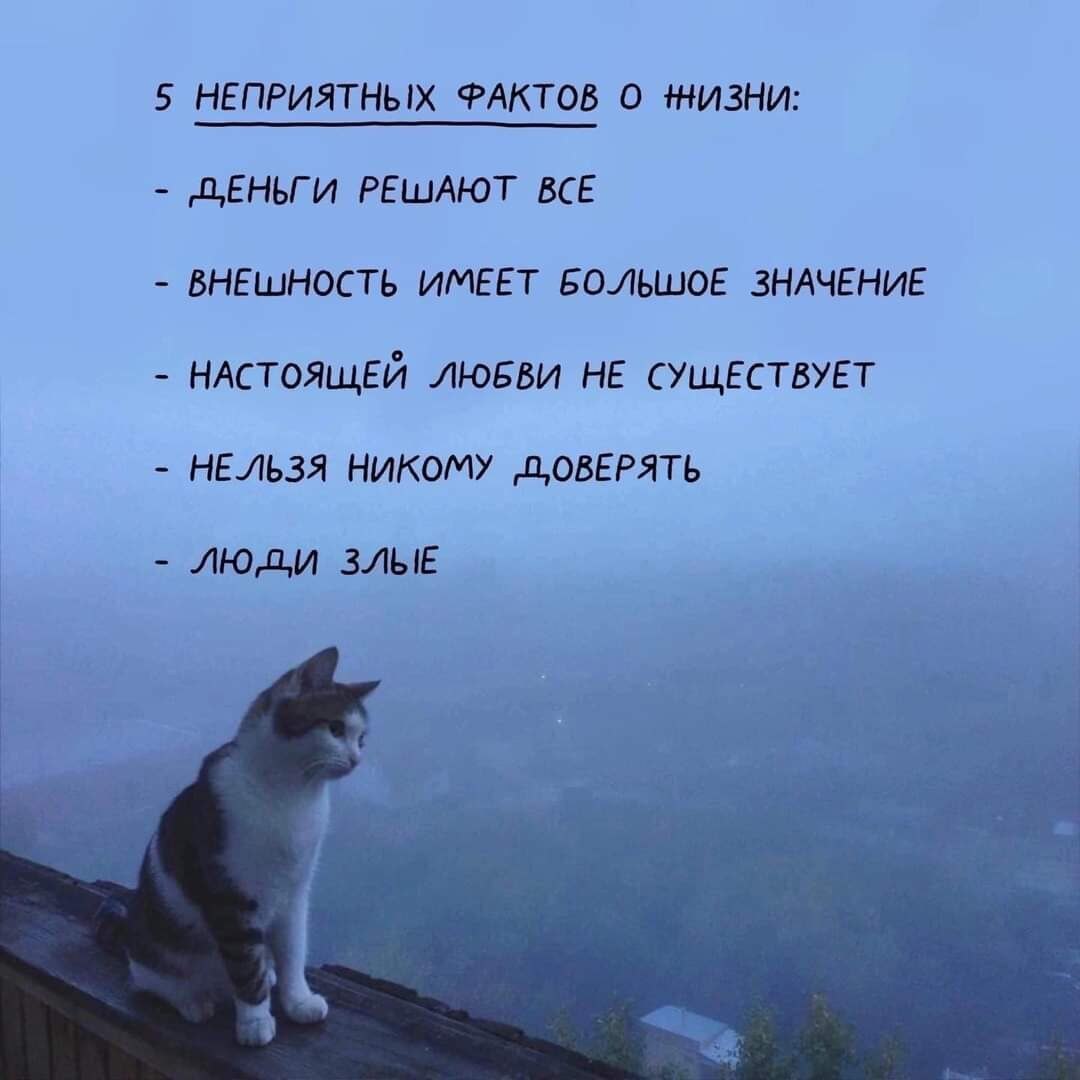 5 НЕПРИЯТНЫХ ФАКТОВ О ЖИЗНИ:
- ДЕНЬГИ РЕШАЮТ ВСЕ
- ВНЕШНОСТЬ ИМЕЕТ БОЛЬШОЕ ЗНАЧЕНИЕ
- НАСТОЯЩЕЙ ЛЮБВИ НЕ СУЩЕСТВУЕТ
- НЕЛЬЗЯ НИКОМУ ДОВЕРЯТЬ
- ЛЮДИ ЗЛЫЕ